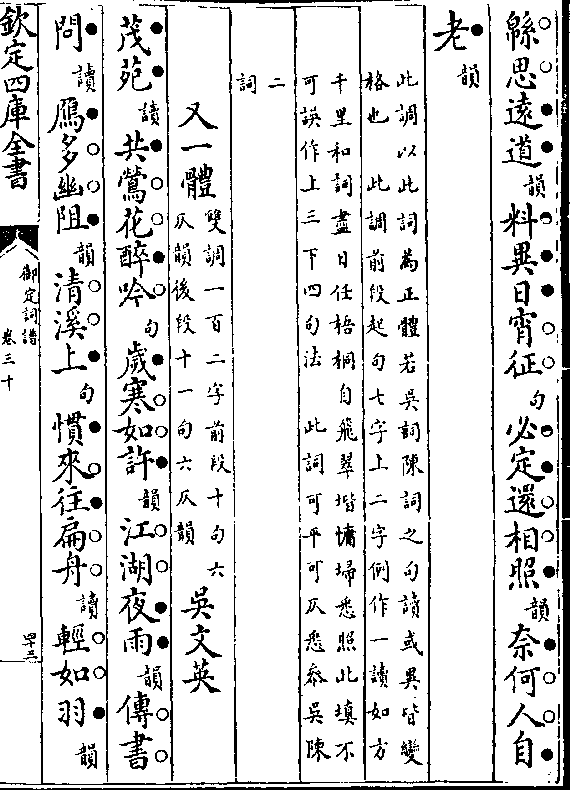 緜思遠道韻料異日宵征句必定還相照韻奈何人自
老韻
此調以此詞為正體若吳詞陳詞之句讀或異皆變
格也　此調前段起句七字上二字例作一讀如方
千里和詞盡日任梧桐自飛翠堦慵埽悉照此填不
可誤作上三下四句法　此詞可平可仄悉叅吳陳
二詞
又一體雙調一百二字前段十句六
仄韻後段十一句六仄韻　吳文英
茂苑讀共鶯花醉吟句歲寒如許韻江湖夜雨韻傳書
問讀鴈多幽阻韻清溪上句慣來往扁舟讀輕如羽韻
欽定四庫全書
御定詞譜
卷三十
四十三